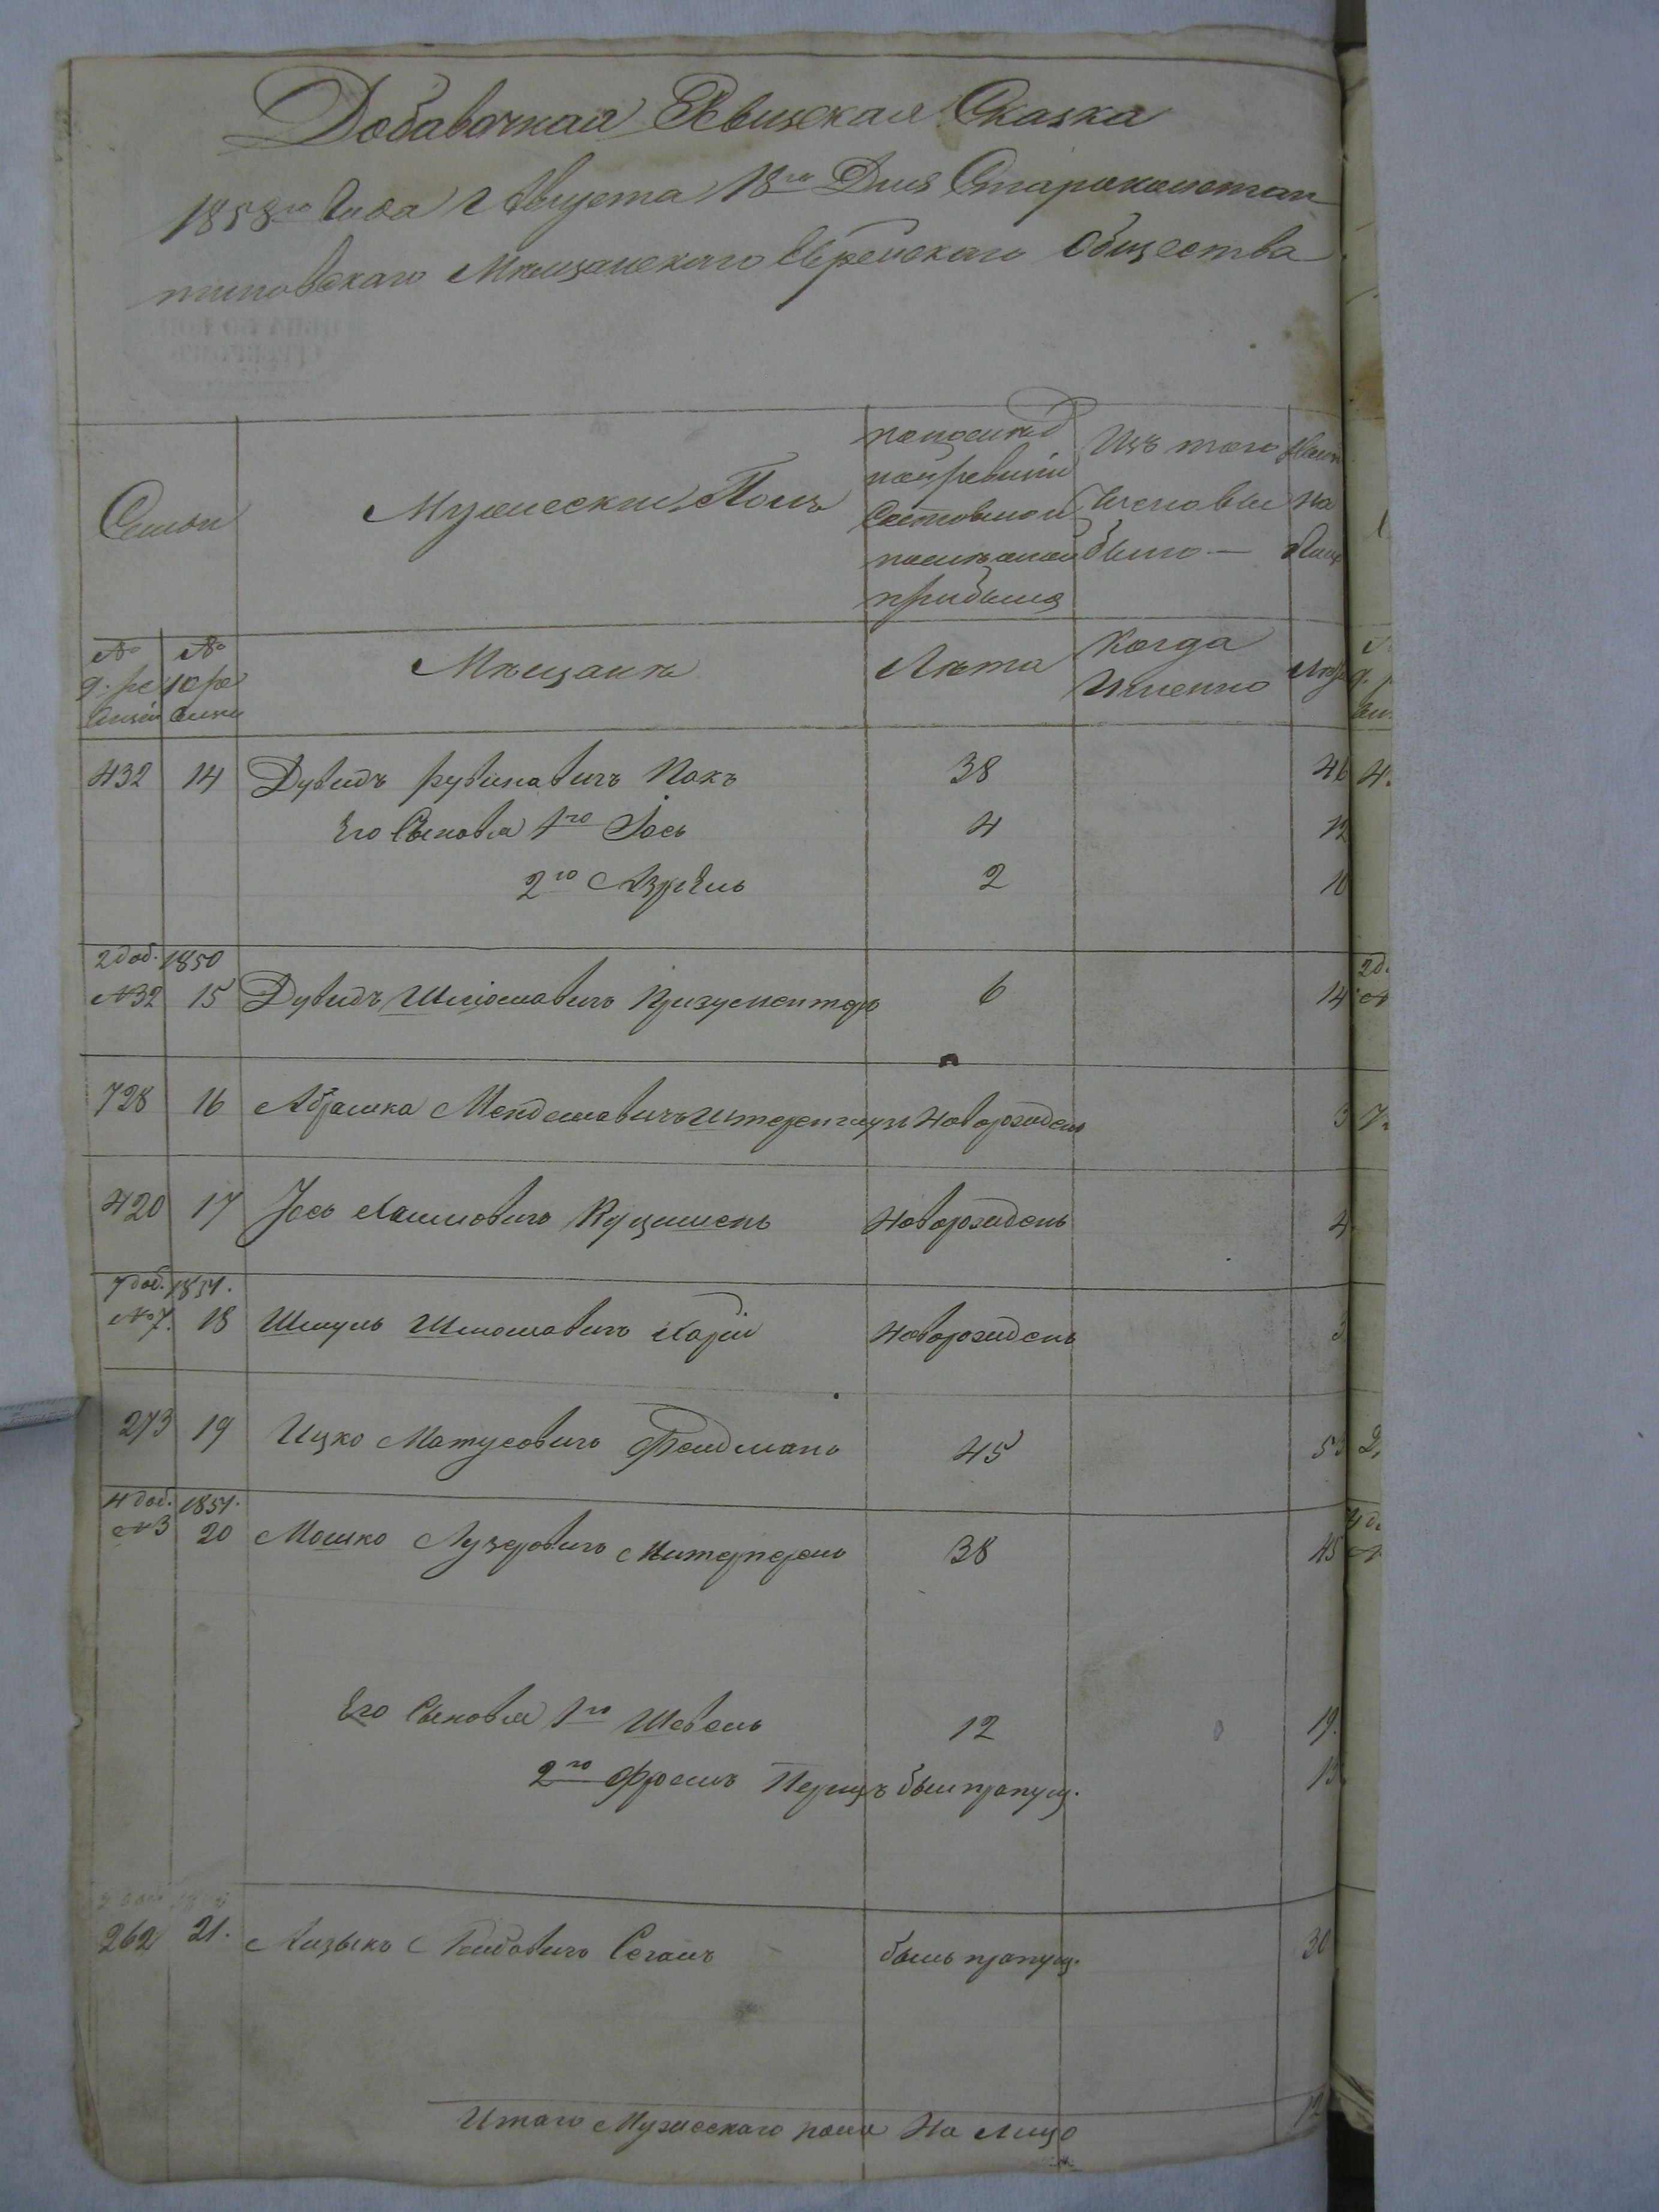 Добавочная Ревижская Сказка
1858го Года Августа 18го Дня Староконстан
тиновскаго Мѣщанскаго Еврейскаго Общества
Семьи
Мужеский Полъ
по послѣд
ней ревизіи
Состояло и
послѣ оной
прибыло
Изъ того
Числа вы
было —
Нынѣ
на
Лицо
№ 9. ре
визіи
№ 10 ре
визіи
Мѣщанѣ
Лѣта
Когда
Именно
Лѣта
432 14 Дувидъ Рувиновичъ Покъ 38 46
Его Сыновья 1го Іось 4 12
2го Азріель 2 10
2 доб. 1850
№32 15 Дувидъ Шліомовичъ 6 14
728 16 Абрамка Менделовичъ Новорожденъ 3
420 17 Іось Новорожденъ 4
7 доб. 1851.
№7. 18 Шмуль Шліомовичъ Новорожденъ 3
273 19 Ицко Матусовичъ Фельдманъ 45 53
4 доб. 1851.
№3 20 Мошко Лузеровичъ 38 45
Его Сыновья 1го Шевель 12 19.
2го Фроимъ Перецъ былъ пропущ. 13
262 21. Айзыкъ Сегалъ былъ пропущ. 30
Итого Мужескаго пола На лицо 12